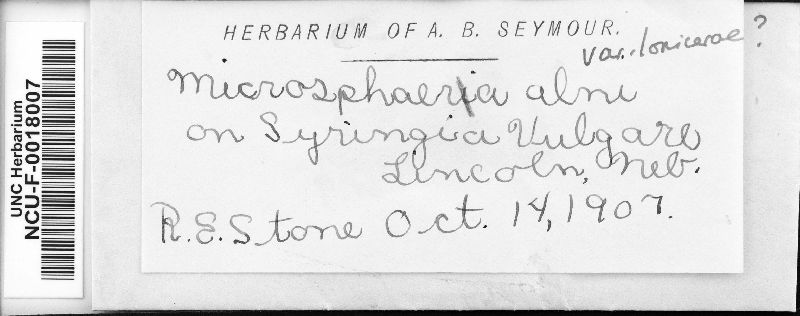 UNC Herbarium
NCU-F-0018007
HERBARIUM OF A. B. SEYMOUR.
var. lonicerae ?
Microsphaeria alni
on Syringia Vulgare
Lincoln, Neb.
R.E. Stone Oct. 14, 1907.